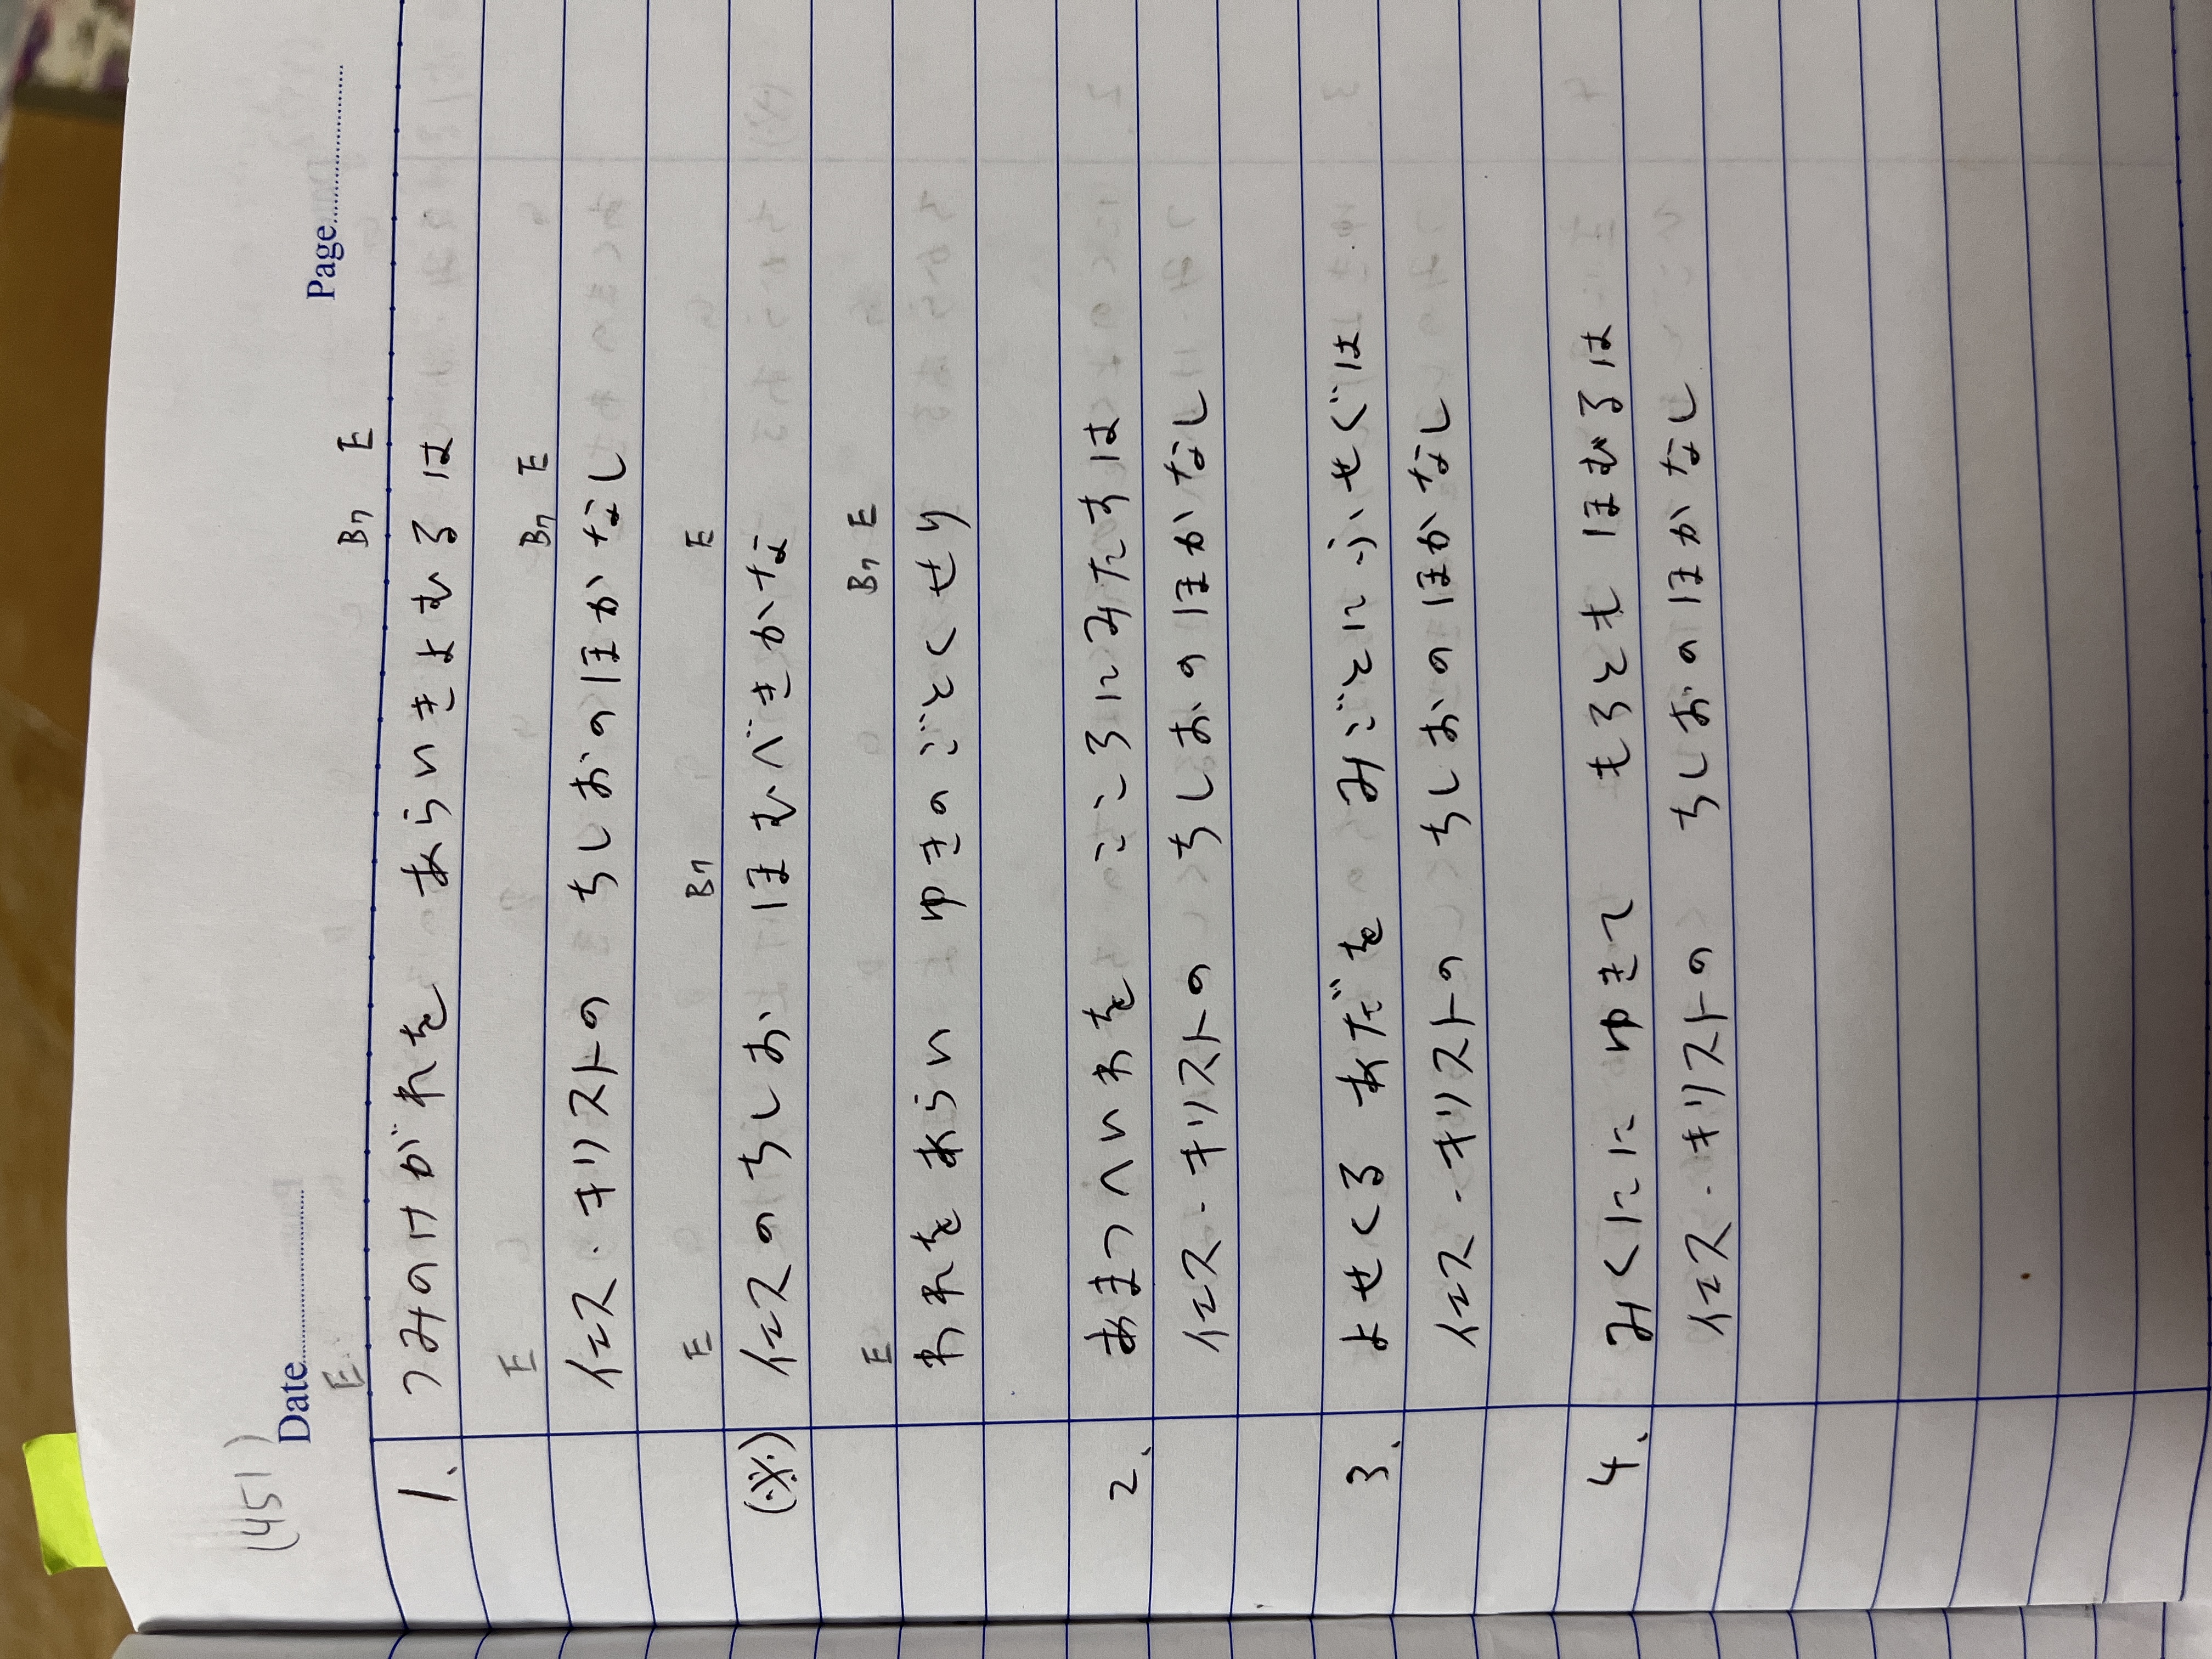 (451)
Date
Page
E B7 E
1、 つみのけがれを あらいきよむるは
E B7 E
イエス・キリストの ちしおのほかなし
E B7 E
(※) イエスのちしお ほむべきかな
E B7 E
われをあらい ゆきのごとくせり
2、 あまつへいわを こころにみたすは
イエス・キリストの ちしおのほかなし
3、 よせくる あだを みごとにふせぐは
イエス・キリストの ちしおのほかなし
4、 みくにに ゆきて もろとも ほむるは
イエス・キリストの ちしおのほかなし